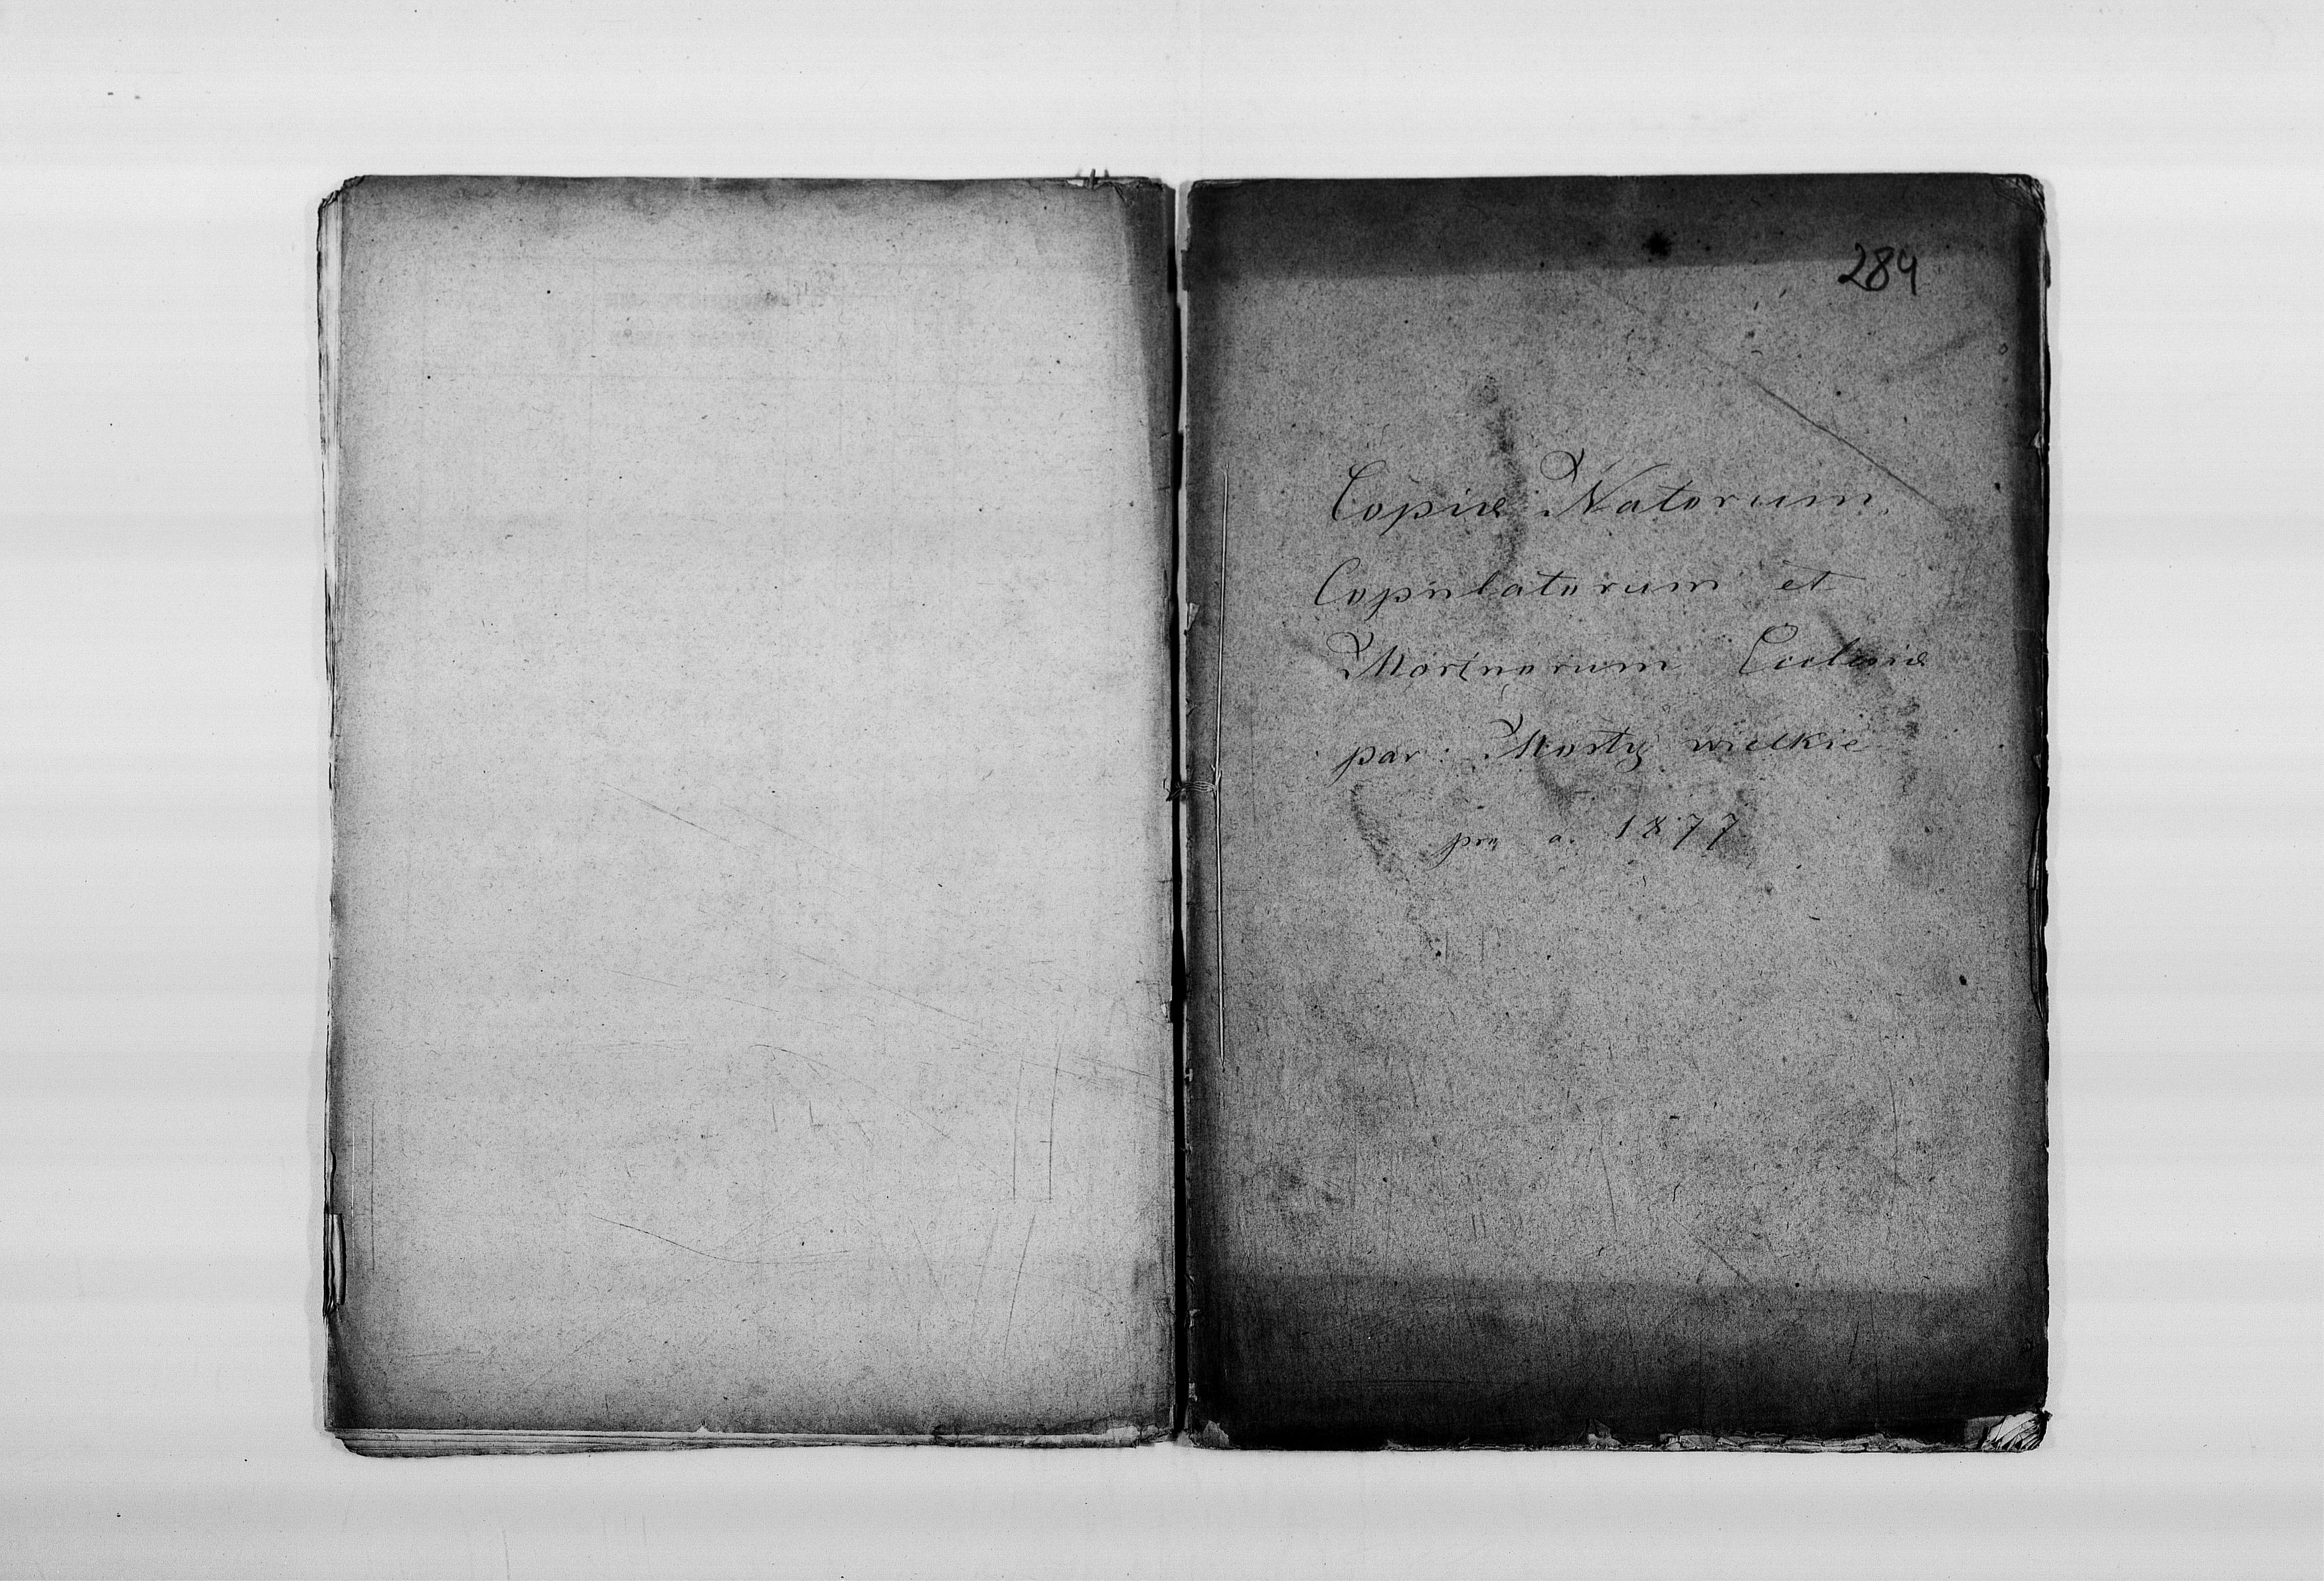 284
Copiæ Natorum,
Copulatorum et
Mortuorum Ecclesiæ
par: Mosty wielkie
pro a. 1877